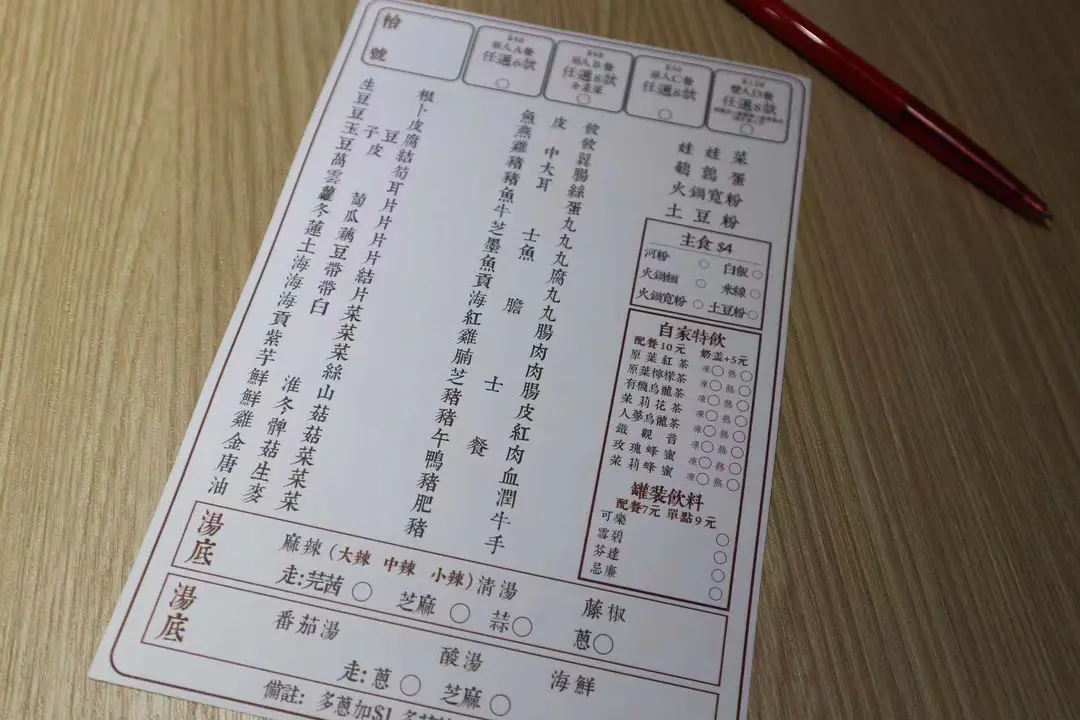 枱號
$48
單人A餐
任選6款
單人B餐
任選8款
全走菜
單人C餐
任選8款
雙人D餐
任選8款
生根
豆卜
豆皮
玉子豆腐
豆皮結
萵筍
雲耳
蘿蔔片
冬瓜片
蓮藕片
土豆片
海帶結
海帶片
海白菜
貢菜
紫菜
芋絲
鮮淮山
鮮冬菇
雞髀菇
金菇
唐生菜
油麥菜
魚皮餃
燕餃
雞中翼
豬大腸
豬耳絲
魚蛋
牛丸
芝士丸
墨魚丸
魚腐
貢丸
海膽丸
紅腸
雞肉
腩肉
芝士腸
豬皮
豬紅
午餐肉
鴨血
豬潤
肥牛
豬手
娃娃菜
鵪鶉蛋
火鍋寬粉
土豆粉
主食 $4
河粉 白飯
火鍋麵 米線
火鍋寬粉 土豆粉
自家特飲
配餐10元 奶盖+5元
原葉紅茶 凍 熱
原葉檸檬茶 凍 熱
有機烏龍茶 凍 熱
茉莉花茶 凍 熱
人蔘烏龍茶 凍 熱
鐵觀音 凍 熱
玫瑰蜂蜜 凍 熱
茉莉蜂蜜 凍 熱
罐装飲料
配餐7元 單點9元
可樂
雪碧
芬達
忌廉
湯底
麻辣(大辣 中辣 小辣) 清湯 藤椒
走:芫茜 芝麻 蒜 蔥
湯底
番茄湯 酸湯 海鮮
走:蔥 芝麻
備註: 多蔥加$1